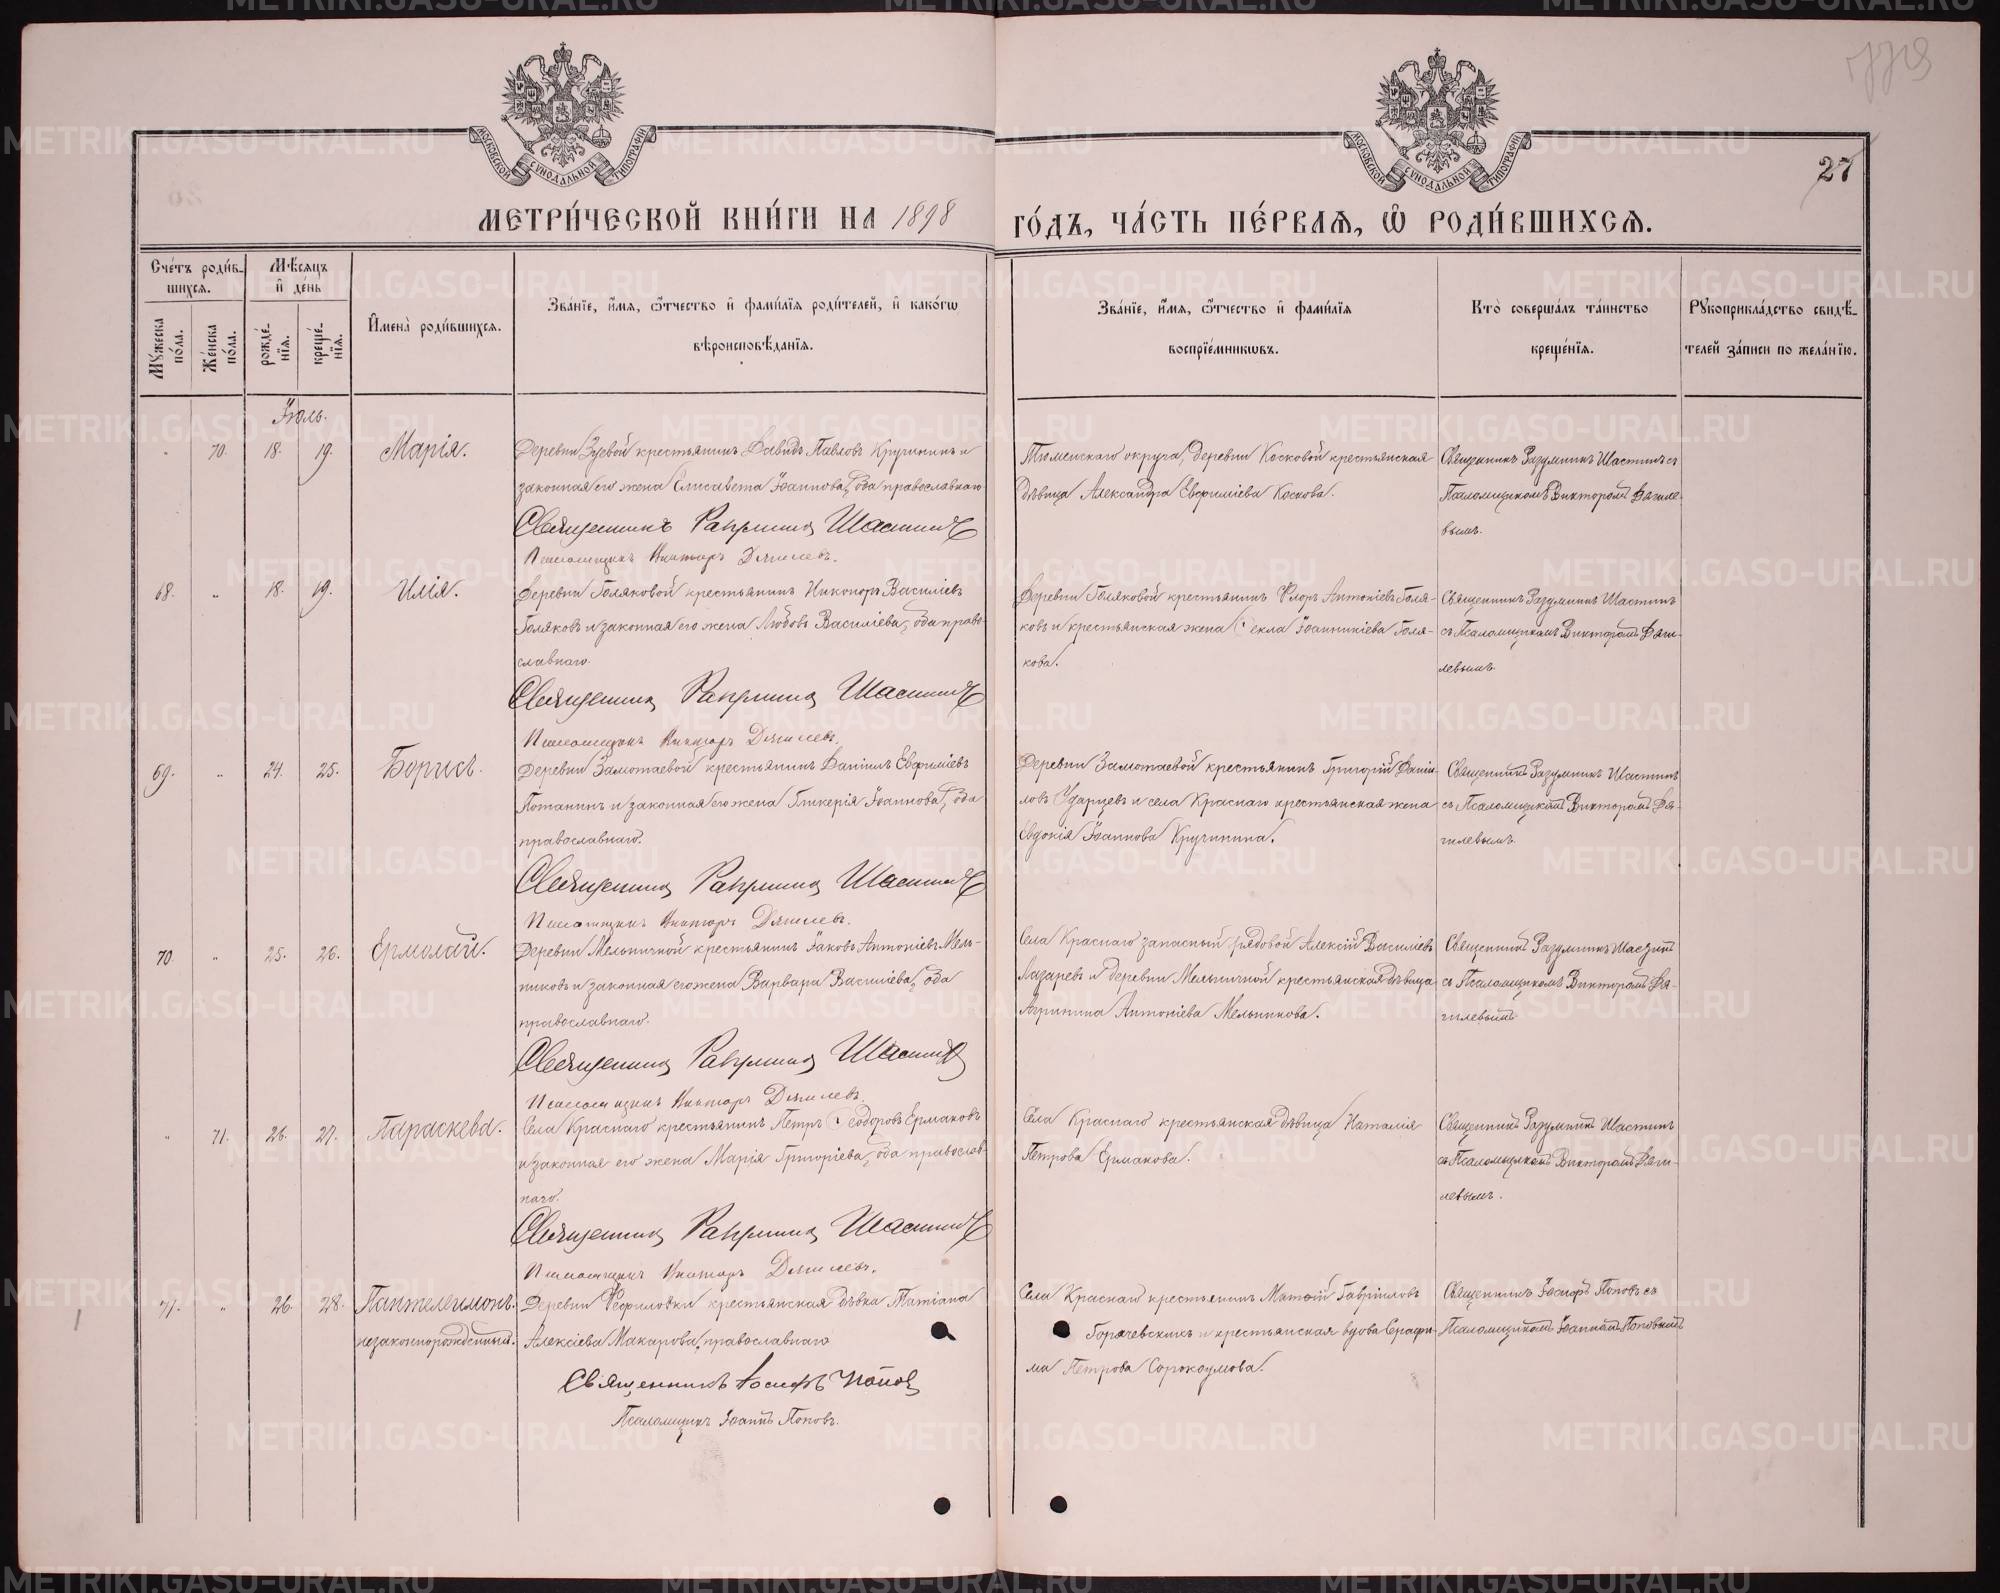 27
МЕТРИ́ЧЕСКОЙ КНИ́ГИ НА 1898 ГО́ДЪ, ЧА́СТЬ ПЕ́РВАѦ, Ѽ РОДИ́ВШИХСѦ.
МОСКОВСКОЙ СѴНОДАЛЬНОЙ ТИПОГРАФІИ
МОСКОВСКОЙ СѴНОДАЛЬНОЙ ТИПОГРАФІИ
Сче́тъ роди́в-
шихсѧ.
Мꙋжеска по́ла.
Же́нска по́ла.
Мѣ́сѧцъ
и҆ де́нь
рожде́-
нїѧ.
креще́-
нїѧ.
И҆мена̀ роди́вшихсѧ.
Зва́нїе, и҆́мѧ, ѻ҆́тчество и҆ фами́лїѧ роди́телей, и҆ како́гѡ
вѣроисповѣ́данїѧ.
Зва́нїе, и҆́мѧ, ѻ҆́тчество и҆ фами́лїѧ
воспрїе́мникѡвъ.
Кто̀ соверша́лъ та́инство
креще́нїѧ.
Рꙋкоприкла́дство свидѣ́-
телей за́писи по жела́нїю.
Іюль.
70. 18. 19. Марія.
Деревни Зуевой крестьянинъ Давидъ Павловъ Кручининъ и
законная его жена Елисавета Іоаннова, оба православнаго
Священникъ Разумникъ Шастинъ
Псаломщикъ Викторъ Дягилевъ.
Тюменскаго округа, деревни Косковой крестьянская
дѣвица Александра Евфиміева Коскова.
Священникъ Разумникъ Шастинъ съ
Псаломщикомъ Викторомъ Дягиле-
вымъ.
68. " 18. 19. Илія.
Деревни Голяковой крестьянинъ Никоноръ Василіевъ
Голяковъ и законная его жена Любовь Василіева, оба право-
славнаго.
Священникъ Разумникъ Шастинъ
Псаломщикъ Викторъ Дягилевъ.
Деревни Голяковой крестьянинъ Флоръ Антоніевъ Голя-
ковъ и крестьянская жена Ѳекла Іоанникіева Голя-
кова.
Священникъ Разумникъ Шастинъ
съ Псаломщикомъ Викторомъ Дяги-
левымъ.
69. " 24. 25. Борисъ.
Деревни Замотаевой крестьянинъ Даніилъ Евфиміевъ
Потанинъ и законная его жена Гликерія Іоаннова, оба
православнаго.
Священникъ Разумникъ Шастинъ
Псаломщикъ Викторъ Дягилевъ.
Деревни Замотаевой крестьянинъ Григорій Даніи-
ловъ Ударцевъ и села Краснаго крестьянская жена
Евдокія Іоаннова Кручинина.
Священникъ Разумникъ Шастинъ
съ Псаломщикомъ Викторомъ Дя-
гилевымъ.
70. " 25. 26. Ермолай.
Деревни Мельничной крестьянинъ Іаковъ Антоніевъ Мель-
никовъ и законная его жена Варвара Василіева, оба
православнаго.
Священникъ Разумникъ Шастинъ
Псаломщикъ Викторъ Дягилевъ.
Села Краснаго запасный рядовой Алексій Василіевъ
Лазаревъ и деревни Мельничной крестьянская дѣвица
Агрипина Антоніева Мельникова.
Священникъ Разумникъ Шастинъ
съ Псаломщикомъ Викторомъ Дя-
гилевымъ.
" 71. 26. 27. Параскева.
Села Краснаго крестьянинъ Петръ Ѳеодоровъ Ермаковъ
и законная его жена Марія Григоріева, оба православ-
наго.
Священникъ Разумникъ Шастинъ
Псаломщикъ Викторъ Дягилевъ.
Села Краснаго крестьянская дѣвица Наталія
Петрова Ермакова.
Священникъ Разумникъ Шастинъ
съ Псаломщикомъ Викторомъ Дяги-
левымъ.
71. " 26. 28. Пантелеимонъ.
незаконнорожденный.
Деревни Ѳефиловки крестьянская дѣвка Татіана
Алексіева Макарова, православнаго
Священникъ Іосифъ Поповъ
Псаломщикъ Іоаннъ Поповъ.
Села Краснаго крестьянинъ Матѳій Гавріиловъ
Горячевскихъ и крестьянская вдова Серафи-
ма Петрова Сорокоумова.
Священникъ Іосифъ Поповъ съ
Псаломщикомъ Іоанномъ Поповымъ
METRIKI.GASO-URAL.RU